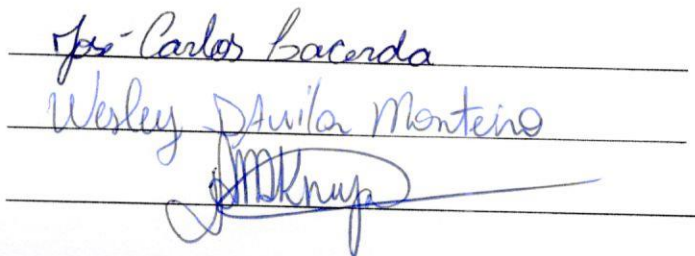 José Carlos Lacerda
Wesley D'Avila Monteiro